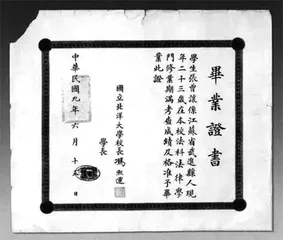 畢業證書
學生張曾讓係江蘇省武進縣人現
年二十三歲在本校法科法律學
門修業期滿考查成績及格准予畢
業此證
國立北洋大學校長馮熙運
學長
中華民國九年六月十五日